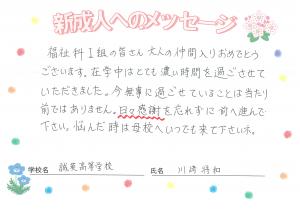 新成人へのメッセージ
福祉科1組の皆さん 大人の仲間入りおめでとう
ございます。在学中はとても濃い時間を過ごさせて
いただきました。今無事に過ごせていることは当たり
前ではありません。日々感謝を忘れずに前へ進んで
下さい。悩んだ時は母校へいつでも来て下さいネ。
学校名 誠英高等学校 氏名 川﨑将和